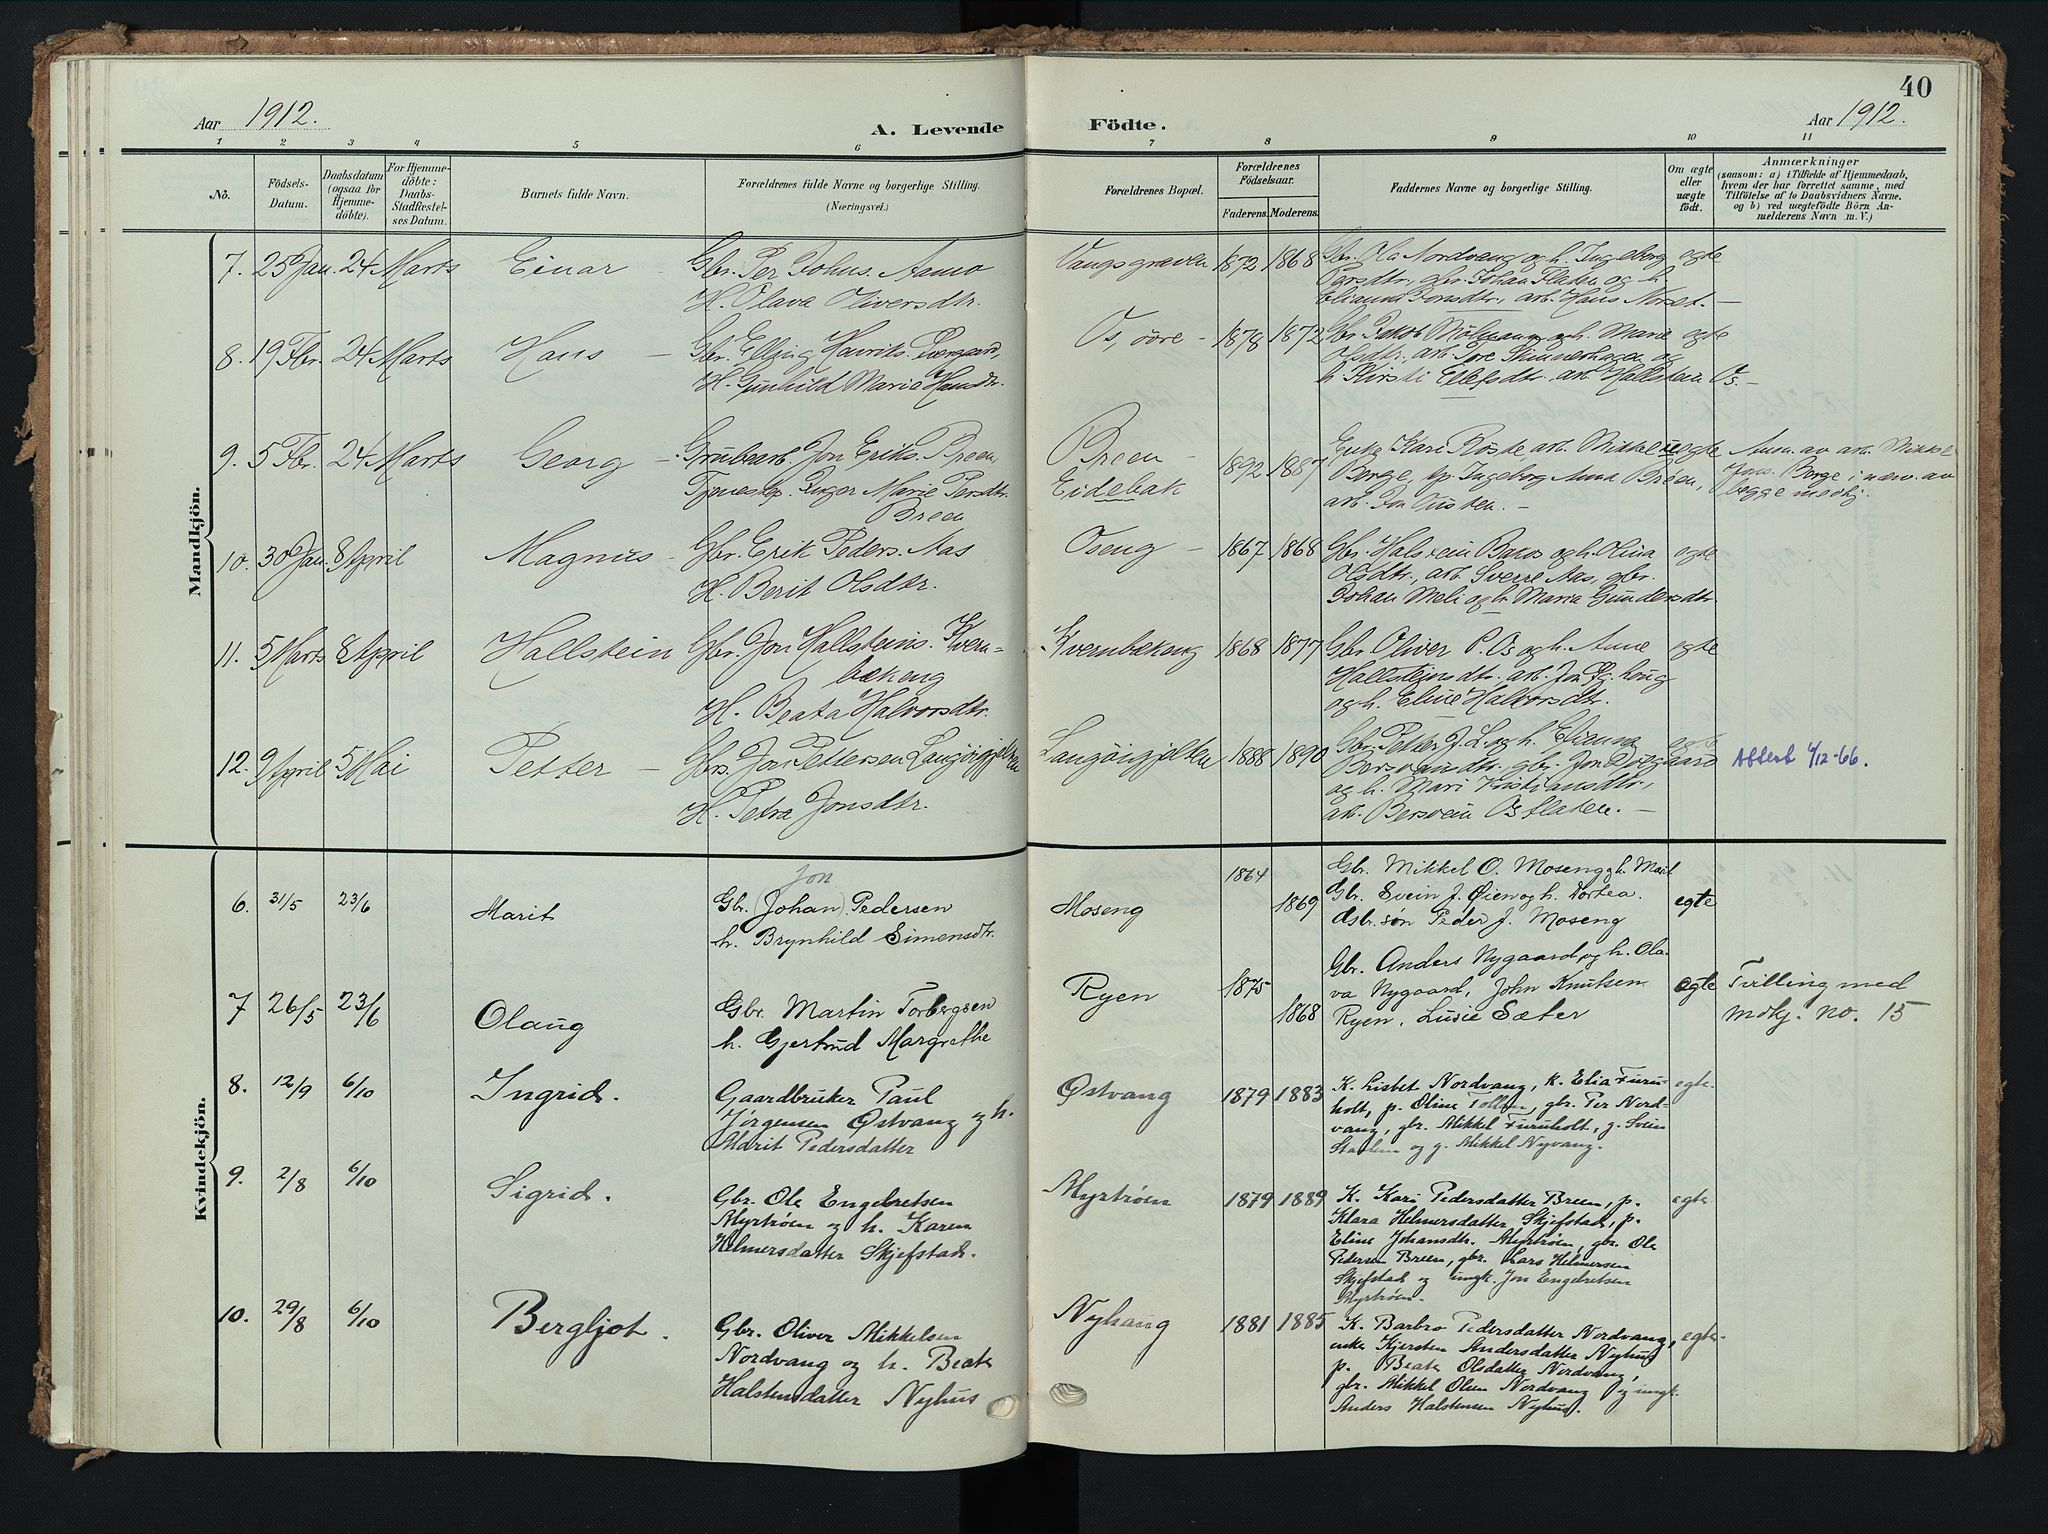 40
Aar 1912.
A. Levende
Födte.
Aar 1912.
1 2 3 4 5 6 7 8 9 10 11
No.
Födsels-
Datum.
Daabsdatum
(ogsaa for
Hjemme-
döbte).
For Hjemme-
döbte:
Daabs-
Stadfæstel-
ses Datum.
Barnets fulde Navn.
Forældrenes fulde Navne og borgerlige Stilling.
(Næringsvei.)
Forældrenes Bopæl.
Forældrenes
Födselsaar.
Faderens. Moderens.
Faddernes Navne og borgerlige Stilling.
Om ægte
eller
uægte
födt.
Anmærkninger
(saasom: a) i Tilfælde af Hjemmedaab,
hvem der har forrettet samme, med
Tilföielse af to Daabsvidners Navne.
og b) ved uægtefödte Börn An-
melderens Navn m. V.)
Mandkjön.
7. 25 Jan. 24 Marts Einar - Gbr. Per Johns. Aamo
H. Olava Oliversdtr.
Vangsgraven 1872 1868 Gbr. Ola Nordvang og h. Ingeborg egte
Persdtr., gbr. Johan Floden og h.
Jonsdtr., arb. Hans Noret. -
8. 19 Fbr. 24 Marts Hans - Gbr. Elling Henriks.
H. Gunhild Marie Hansdtr.
Os, öore - 1878 1872 Gbr. Jakob og h. Marie egte
Olsdtr., arb. Tore og
h. Kirsti Ellefsdtr. arb. Hallstein Os. -
9. 5 Fbr. 24 Marts Georg - Grubearb. Jon Eriks. Breen
Tjenestep. Inger Marie Persdtr.
Breen
Breen -
Eidebak
1892 1887 Enke Kari Röste arb. Mikkel uegte
Borge, tp. Ingeborg Anna Breen,
arb. Jon -
Anm. av arb. Mikkel
Jons. Borge i nærv. av
begge medtj.
10. 30 Jan. 8 April Magnus - Gbr. Erik Peders. Aas
H. Berit Olsdtr.
Oseng - 1867 1868 Gbr. Halvein og h. Olina egte
Olsdtr., arb. Sverre Aas, gbr.
Johan Meli og h. Maria Gundersdtr.
11. 5 Marts 8 April Hallstein Gbr. Jon Hallsteins. Kvern-
bækeng
H. Beata Halvorsdtr.
Kvernbekeng 1868 1877 Gbr. Oliver P. Os og h. Anne egte
Hallsteinsdtr., arb. Jon
og h. Eline Halvorsdtr.
12. 9 April 5 Mai Petter - Gbr. Jon Pettersen Langöigjelten
H. Petra Jonsdtr.
Langöigjelten 1888 1890 Gbr. Petter J. L. og h. egte
gbr. Jon
og h. Mari Kristiansdtr.,
arb. Bersvein Osflaten. -
Afterb 4/12-66.
Kvindekjön.
6. 31/5 23/6 Marit
Jon
Gbr. (Johan) Pedersen
h. Brynhild Simensdtr.
Moseng 1864 1869
Gbr. Mikkel O. Moseng og h. Marit
Gbr. Svein J. Øien og h. Dortea.
Gbr. søn Peder J. Moseng
egte
7 26/5 23/6 Olaug
Gbr. Martin Torbergsen
h. Gjertrud Margrethe
Ryen 1875 1868
Gbr. Anders Nygaard og h. Ola-
va Nygaard, John Knutsen
Ryen, Lusie Sæter
egte Tvilling med
mdkj. no. 15
8. 12/9 6/10 Ingrid.
Gaardbruker Paul
Jørgensen Østvang og h.
Marit Pedersdatter
Østvang 1879 1883
K. Lisbet Nordvang, k. Elia Furu-
holt, p. Oline Tollan, gbr. Per Nord-
vang, gbr. Mikkel Furuholt, g. Svein
og g. Mikkel Nyvang.
egte.
9. 2/8 6/10 Sigrid.
Gbr. Ole Engebretsen
Myrtrøen og h. Karen
Helmersdatter Skjefstad.
Myrtrøen 1879 1889
K. Kari Pedersdatter Breen, p.
Klara Helmersdatter Skjefstad, p.
Eline Johansdtr. Myrtrøen, gbr. Ole
Pedersen Breen, gbr. Lars Helmersen
Skjefstad og ungk. Jon Engebretsen
Myrtrøen.
egte
10. 29/8 6/10 Bergljot.
Gbr. Oliver Mikkelsen
Nordvang og h. Beate
Halstensdatter Nyhus
Nyhaug 1881 1885
K. Barbro Pedersdatter Nordvang,
enke Kjersten Andersdatter Nyhus
p. Beate Olsdatter Nordvang,
gbr. Mikkel Olsen Nordvang og ungk.
Anders Halstensen Nyhus.
egte.